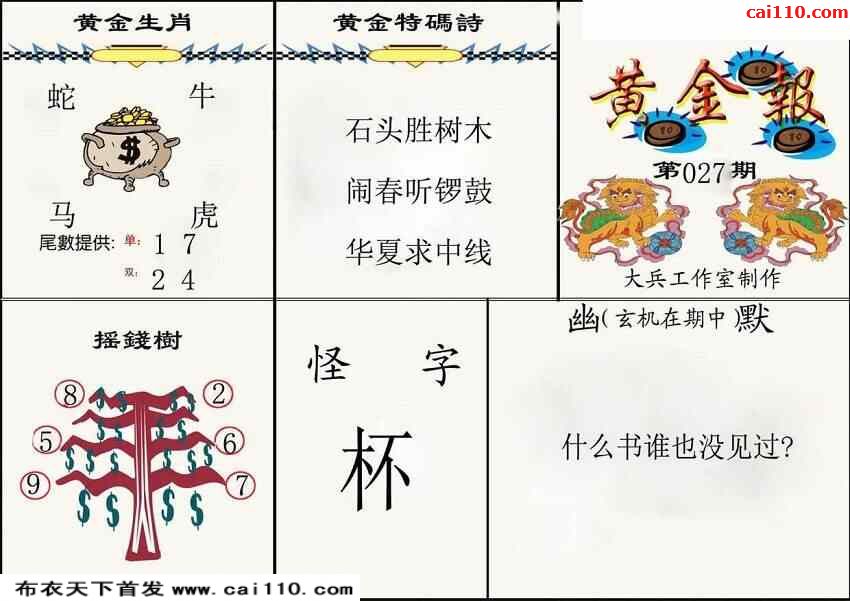 cai110.com
黄金生肖
蛇 牛
$
马 虎
尾數提供: 单: 1 7
双: 2 4
黄金特碼詩
石头胜树木
闹春听锣鼓
华夏求中线
黄金報
第027期
大兵工作室制作
摇錢樹
8 2
5 6
9 7
怪 字
杯
幽(玄机在期中)默
什么书谁也没见过?
布衣天下首发 www.cai110.com